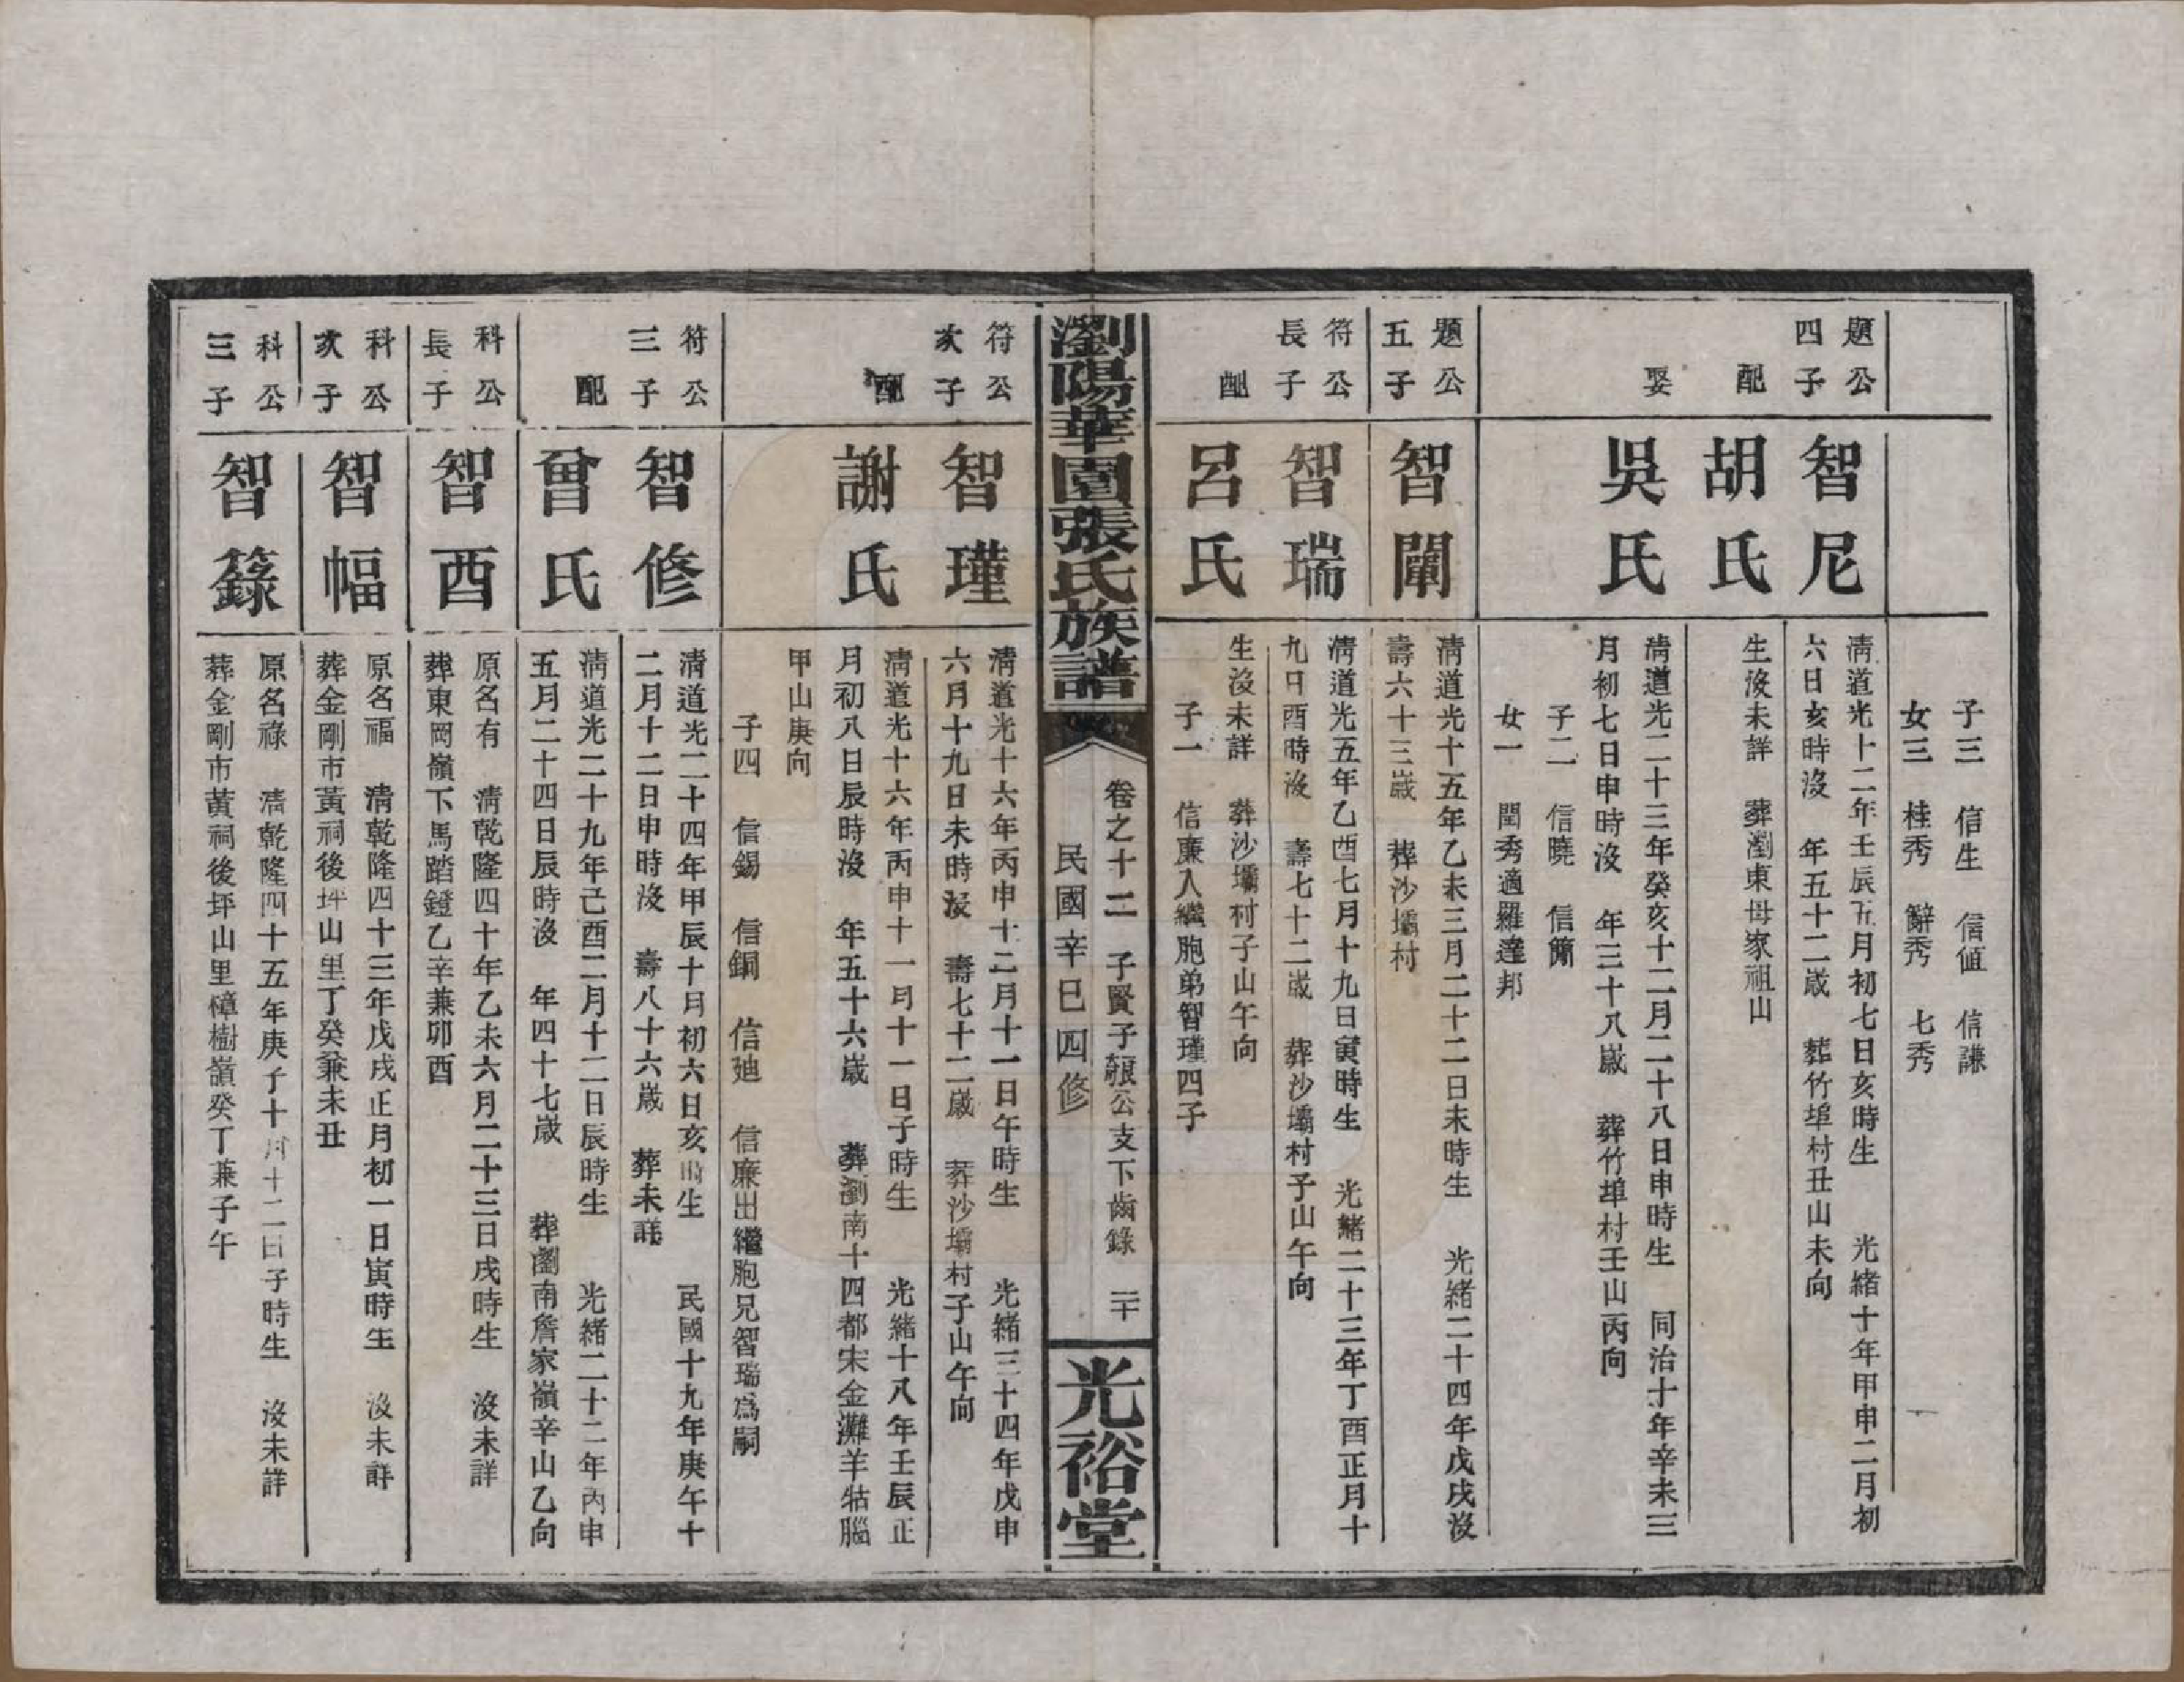 子三 信生 信値 信謙
女三 桂秀 辭秀 七秀
題公四子
智尼
清道光十二年壬辰五月初七日亥時生 光緒十年甲申二月初
六日亥時沒 年五十二歲 葬竹埠村丑山未向
配
胡氏
生沒未詳 葬瀏東毋家祖山
娶
吳氏
清道光二十三年癸亥十二月二十八日申時生 同治十年辛未三
月初七日申時沒 年三十八歲 葬竹埠村壬山丙向
子二 信曉 信簡
女一 閏秀適羅達邦
題公五子
智闡
清道光十五年乙未三月二十二日未時生 光緒二十四年戊戌沒
壽六十三歲 葬沙壩村
符公長子
智瑞
清道光五年乙酉七月十九日寅時生 光緒二十三年丁酉正月十
九日酉時沒 壽七十二歲 葬沙壩村子山午向
配
呂氏
生沒未詳 葬沙壩村子山午向
子一 信廉入繼胞弟智瑾四子
瀏陽華園張氏族譜
卷之十二 子賢子賑公支下齒錄 二十
民國辛巳四修
光裕堂
符公次子
智瑾
清道光十六年丙申十二月十一日午時生 光緒三十四年戊申
六月十九日未時沒 壽七十二歲 葬沙壩村子山午向
配
謝氏
清道光十六年丙申十一月十一日子時生 光緒十八年壬辰正
月初八日辰時沒 年五十六歲 葬瀏南十四都宋金灘羊牯腦
甲山庚向
子四 信錫 信銅 信廸 信廉出繼胞兄智瑞爲嗣
符公三子
智修
清道光二十四年甲辰十月初六日亥時生 民國十九年庚午十
二月十二日申時沒 壽八十六歲 葬未詳
配
曾氏
清道光二十九年己酉二月十二日辰時生 光緒二十二年丙申
五月二十四日辰時沒 年四十七歲 葬瀏南詹家嶺辛山乙向
科公長子
智酉
原名有 清乾隆四十年乙未六月二十三日戌時生 沒未詳
葬東岡嶺下馬踏鐙乙辛兼卯酉
科公次子
智幅
原名福 清乾隆四十三年戊戌正月初一日寅時生 沒未詳
葬金剛市黃祠後坪山里丁癸兼未丑
科公三子
智籙
原名祿 清乾隆四十五年庚子十月十二日子時生 沒未詳
葬金剛市黃祠後坪山里樟樹嶺癸丁兼子午